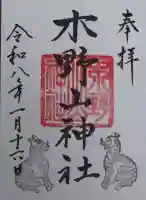 奉拝
木野山神社
令和八年一月十六日